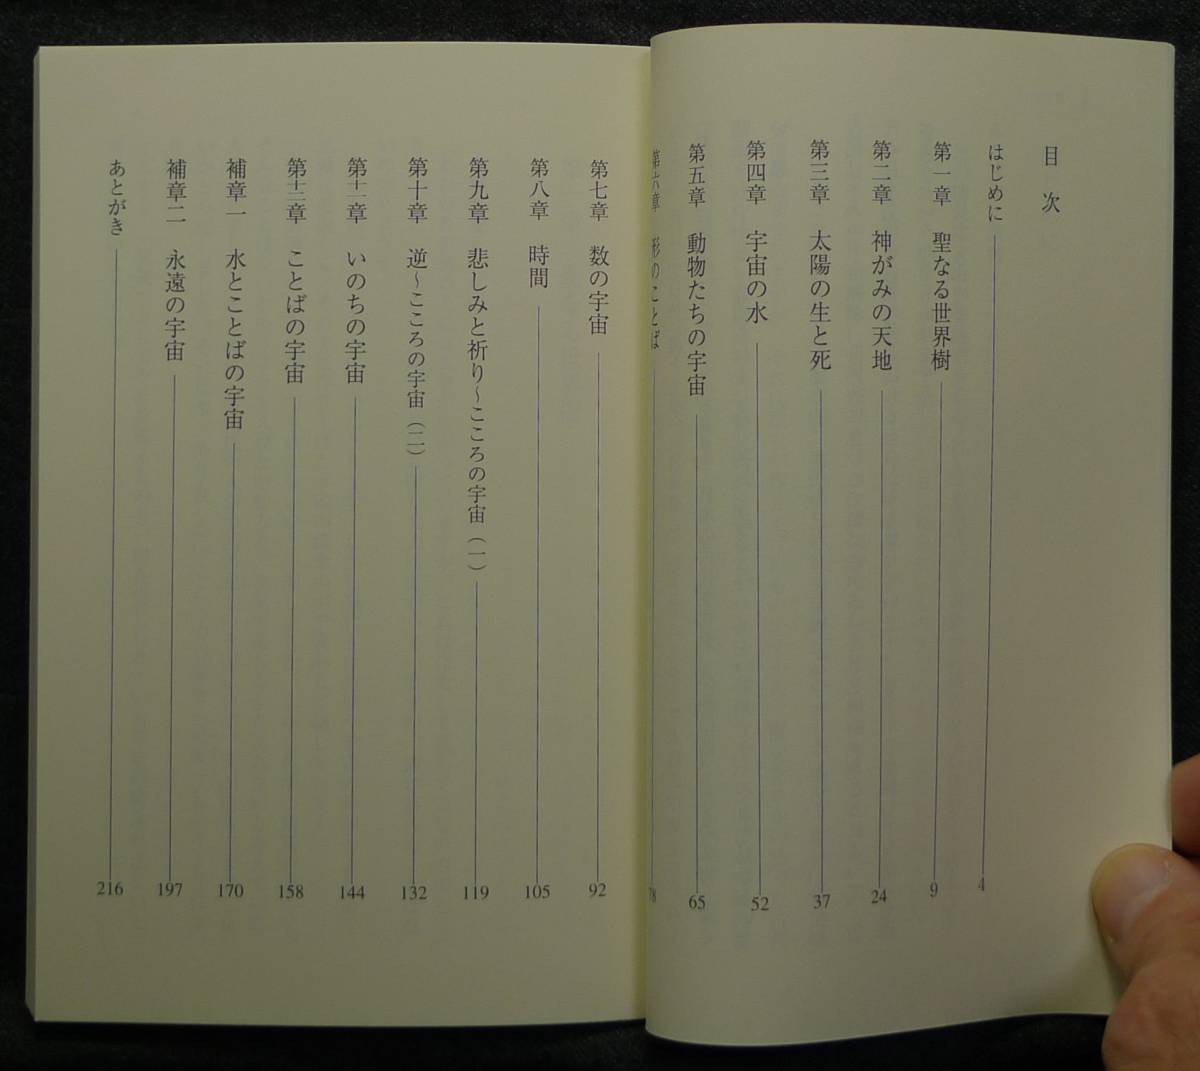 目次
はじめに 4
第一章 聖なる世界樹 9
第二章 神がみの天地 24
第三章 太陽の生と死 37
第四章 宇宙の水 52
第五章 動物たちの宇宙 65
第六章 形のことば 78
第七章 数の宇宙 92
第八章 時間 105
第九章 悲しみと祈り～こころの宇宙（一） 119
第十章 逆～こころの宇宙（二） 132
第十一章 いのちの宇宙 144
第十二章 ことばの宇宙 158
補章一 水とことばの宇宙 170
補章二 永遠の宇宙 197
あとがき 216